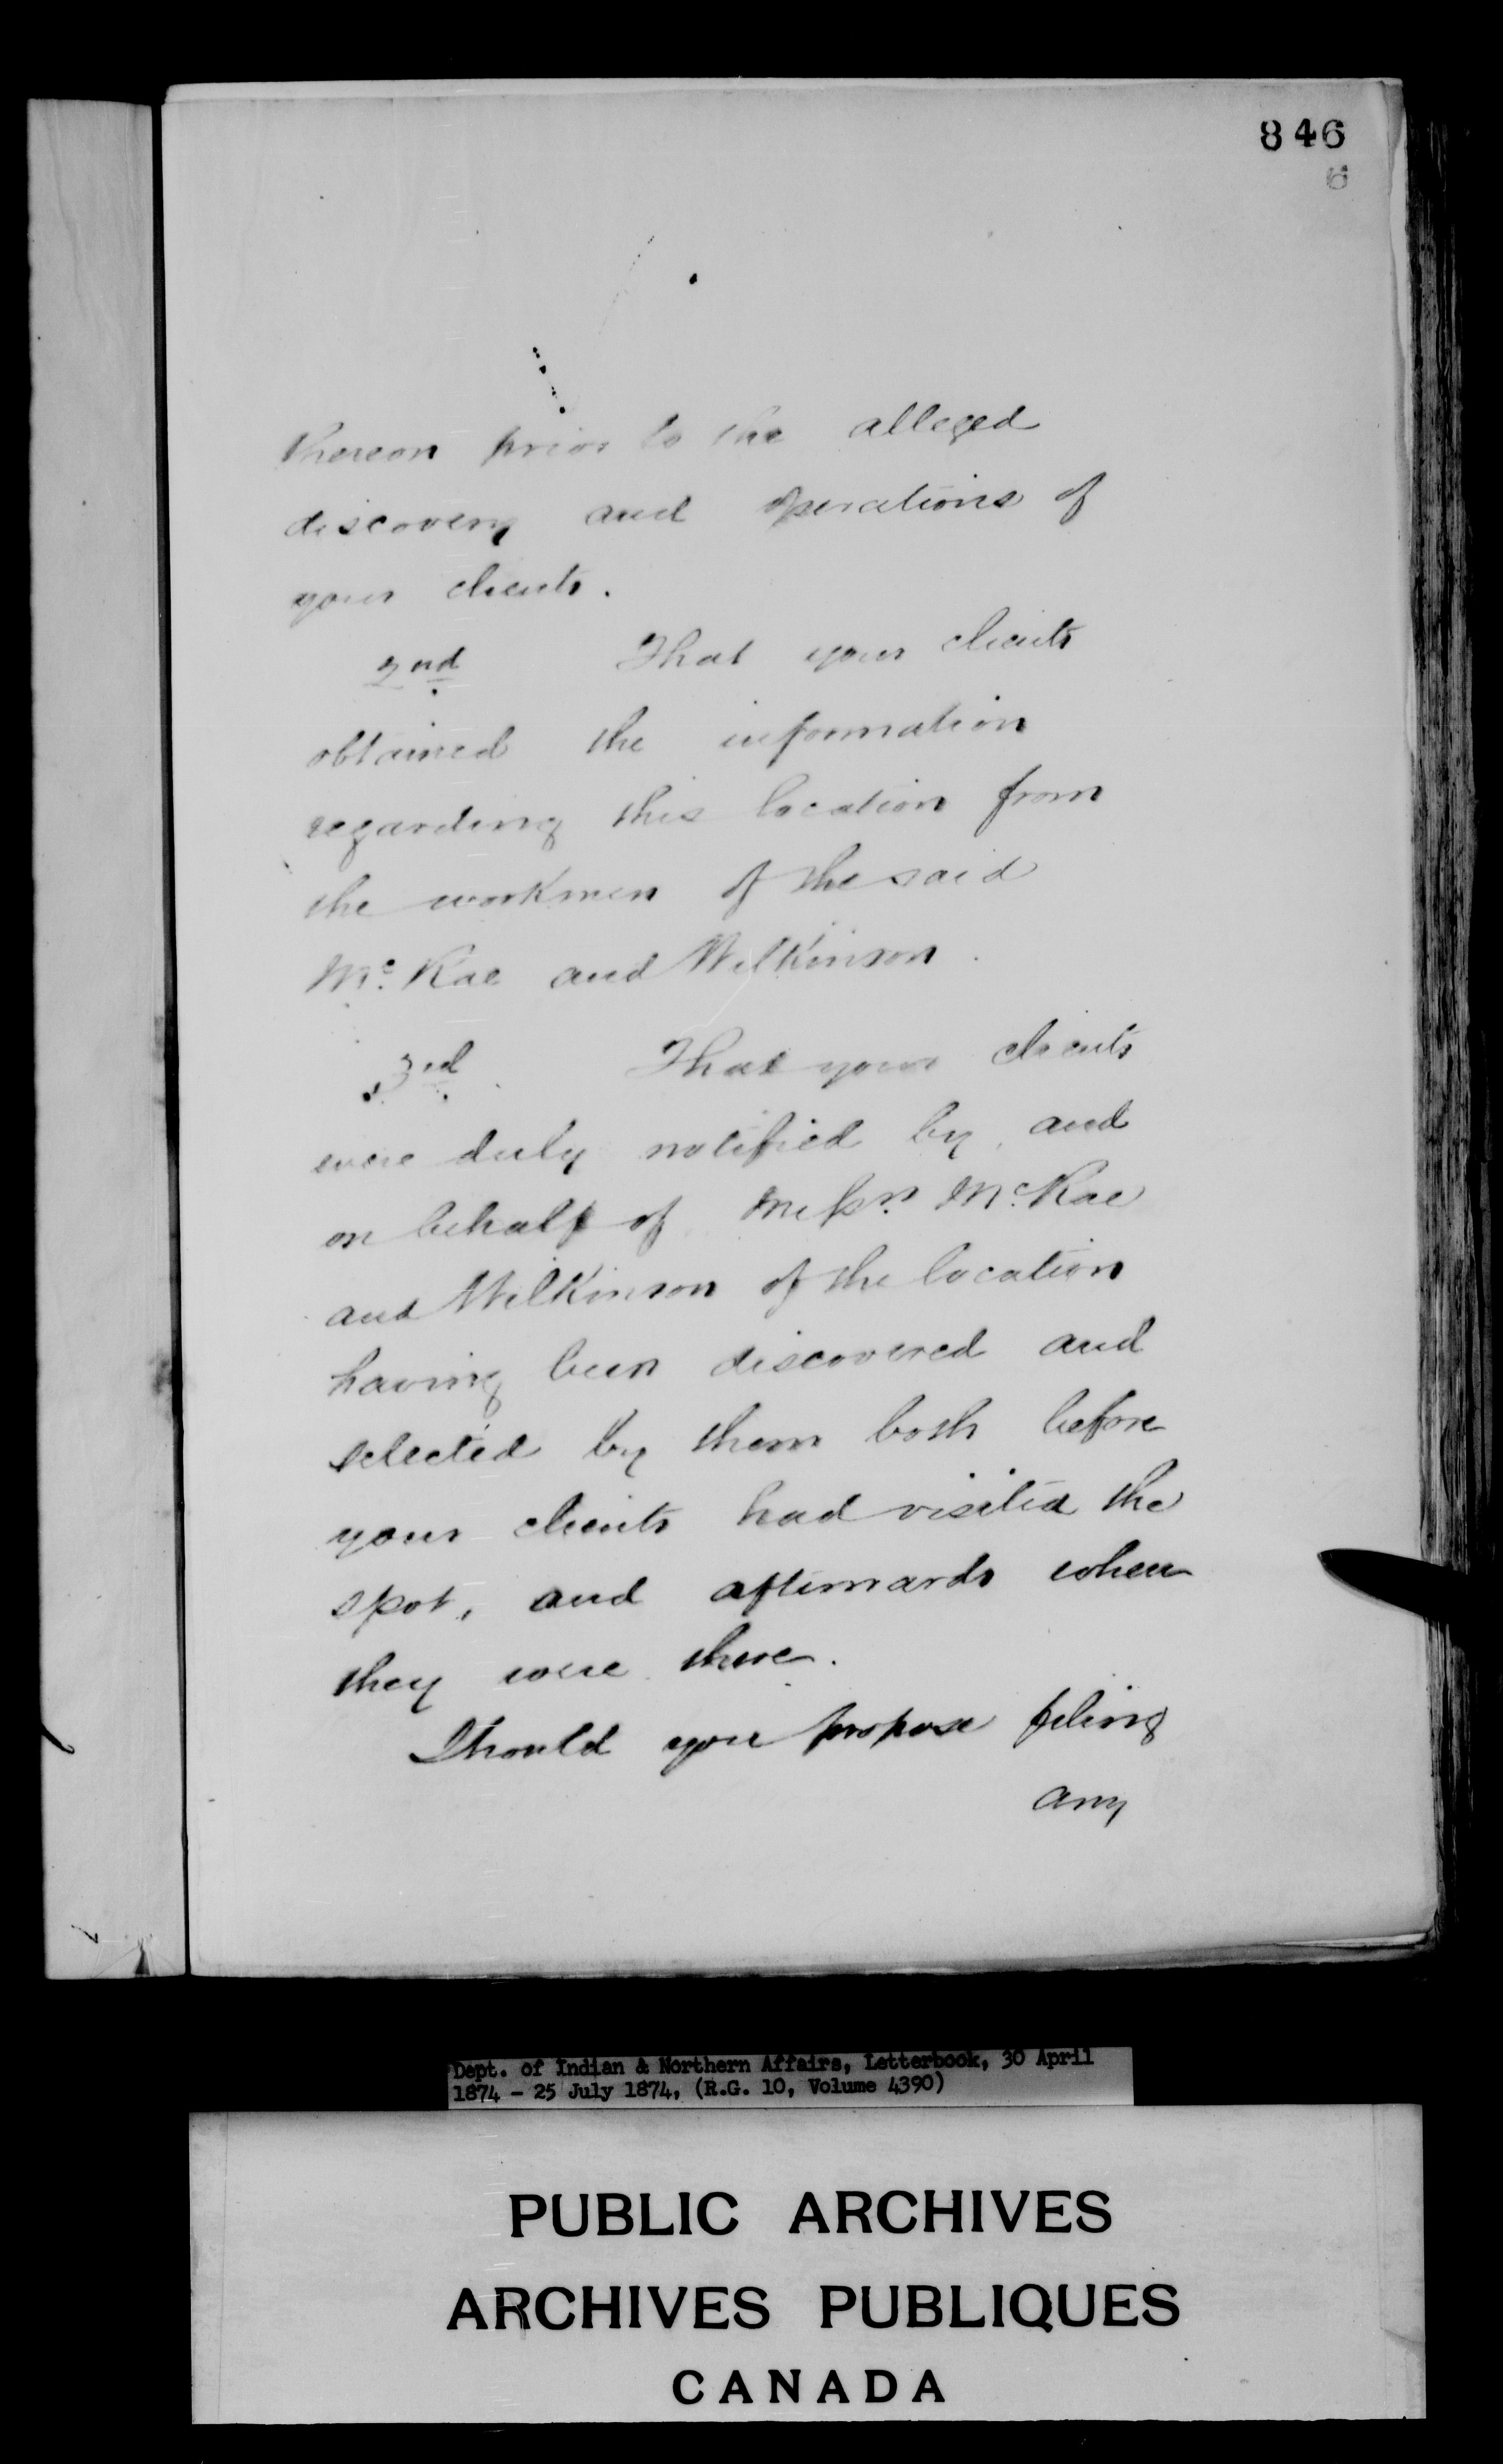 846
6
thereon prior to the alleged
discovery and operations of
your clients.
2nd That your clients
obtained the information
regarding this location from
the workmen of the said
McRae and Wilkinson.
3rd That your clients
were duly notified by, and
on behalf of Messrs. McRae
and Wilkinson of the location
having been discovered and
selected by them both before
your clients had visited the
spot, and afterwards when
they were there.
Should you propose filing
any
Dept. of Indian & Northern Affairs, Letterbook, 30 April
1874 - 25 July 1874, (R.G. 10, Volume 4390)
PUBLIC ARCHIVES
ARCHIVES PUBLIQUES
CANADA